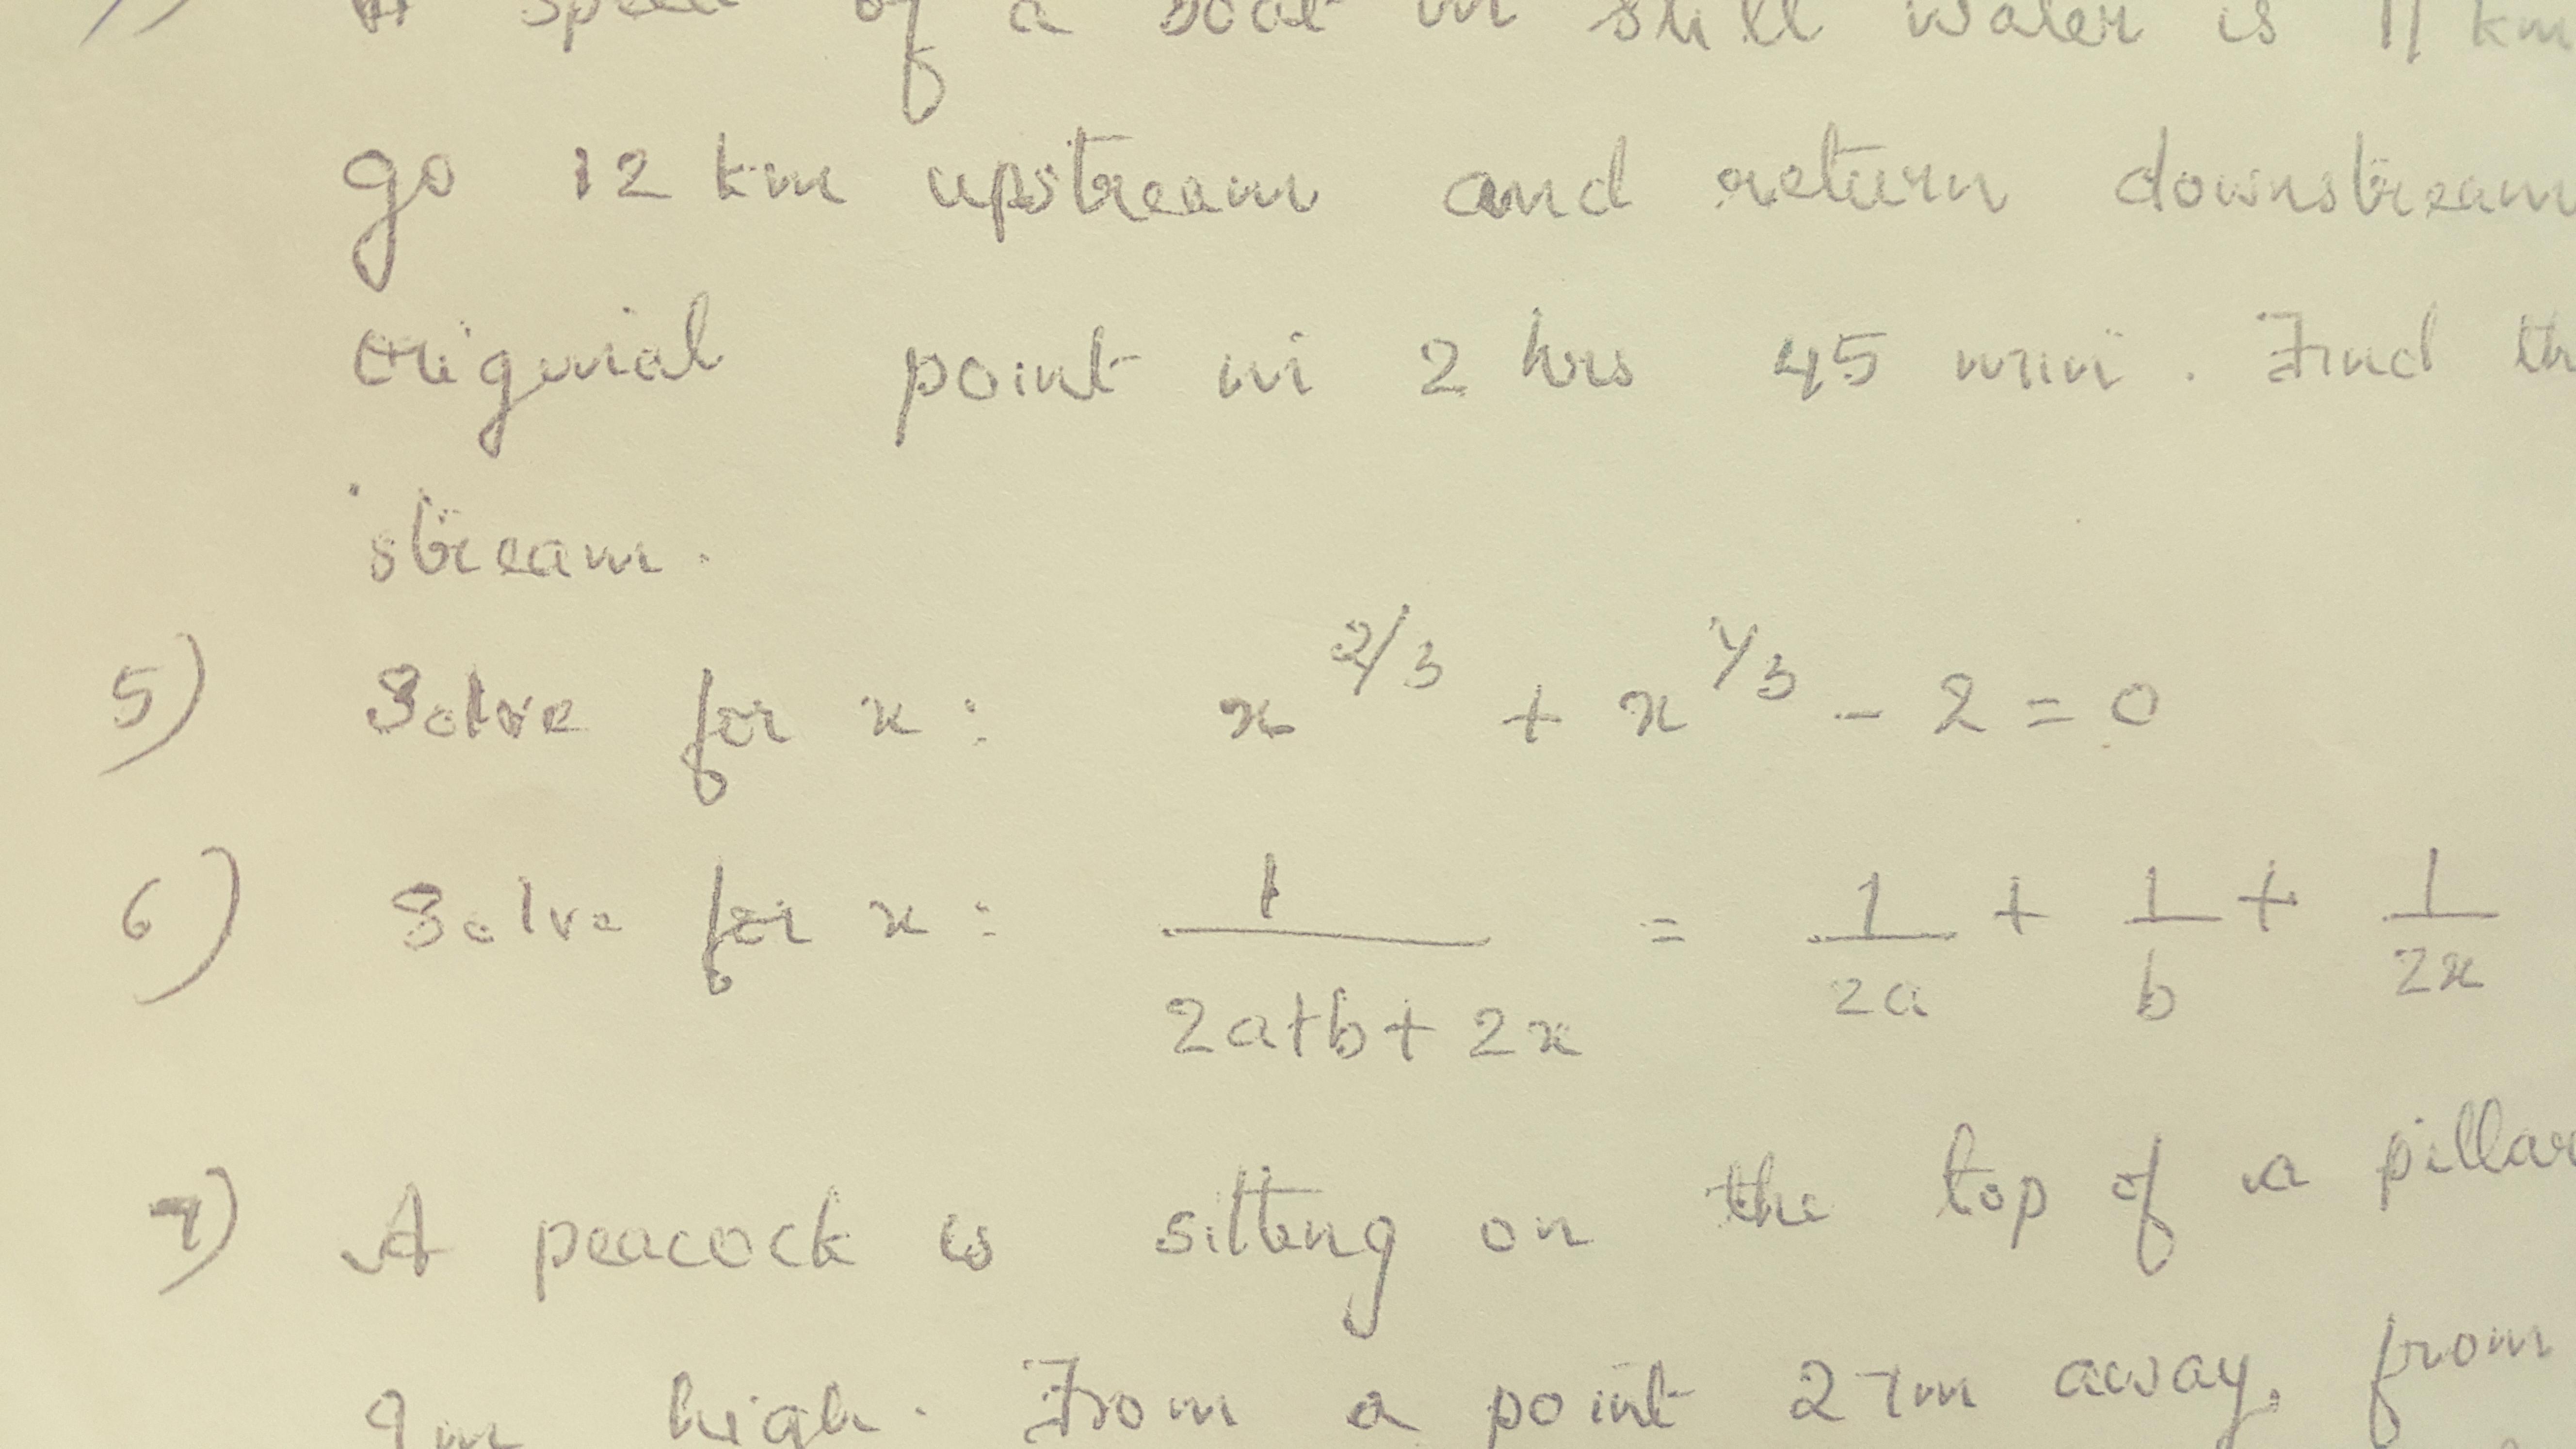 A speed of a boat in still water is 11 km
go 12 km upstream and return downstream
original point in 2 hrs 45 min. Find th
stream.
5) Solve for x: x^2/3 + x^1/3 - 2 = 0
6) Solve for x: 1/(2a+b+2x) = 1/2a + 1/b + 1/2x
7) A peacock is sitting on the top of a pillar
9m high. From a point 27m away, from